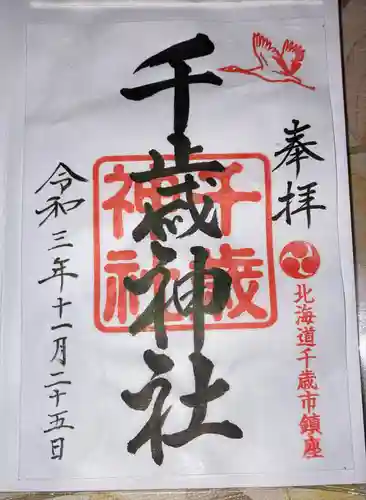 奉拝
北海道千歳市鎮座
千歳神社
千歳神社
令和三年十一月二十五日